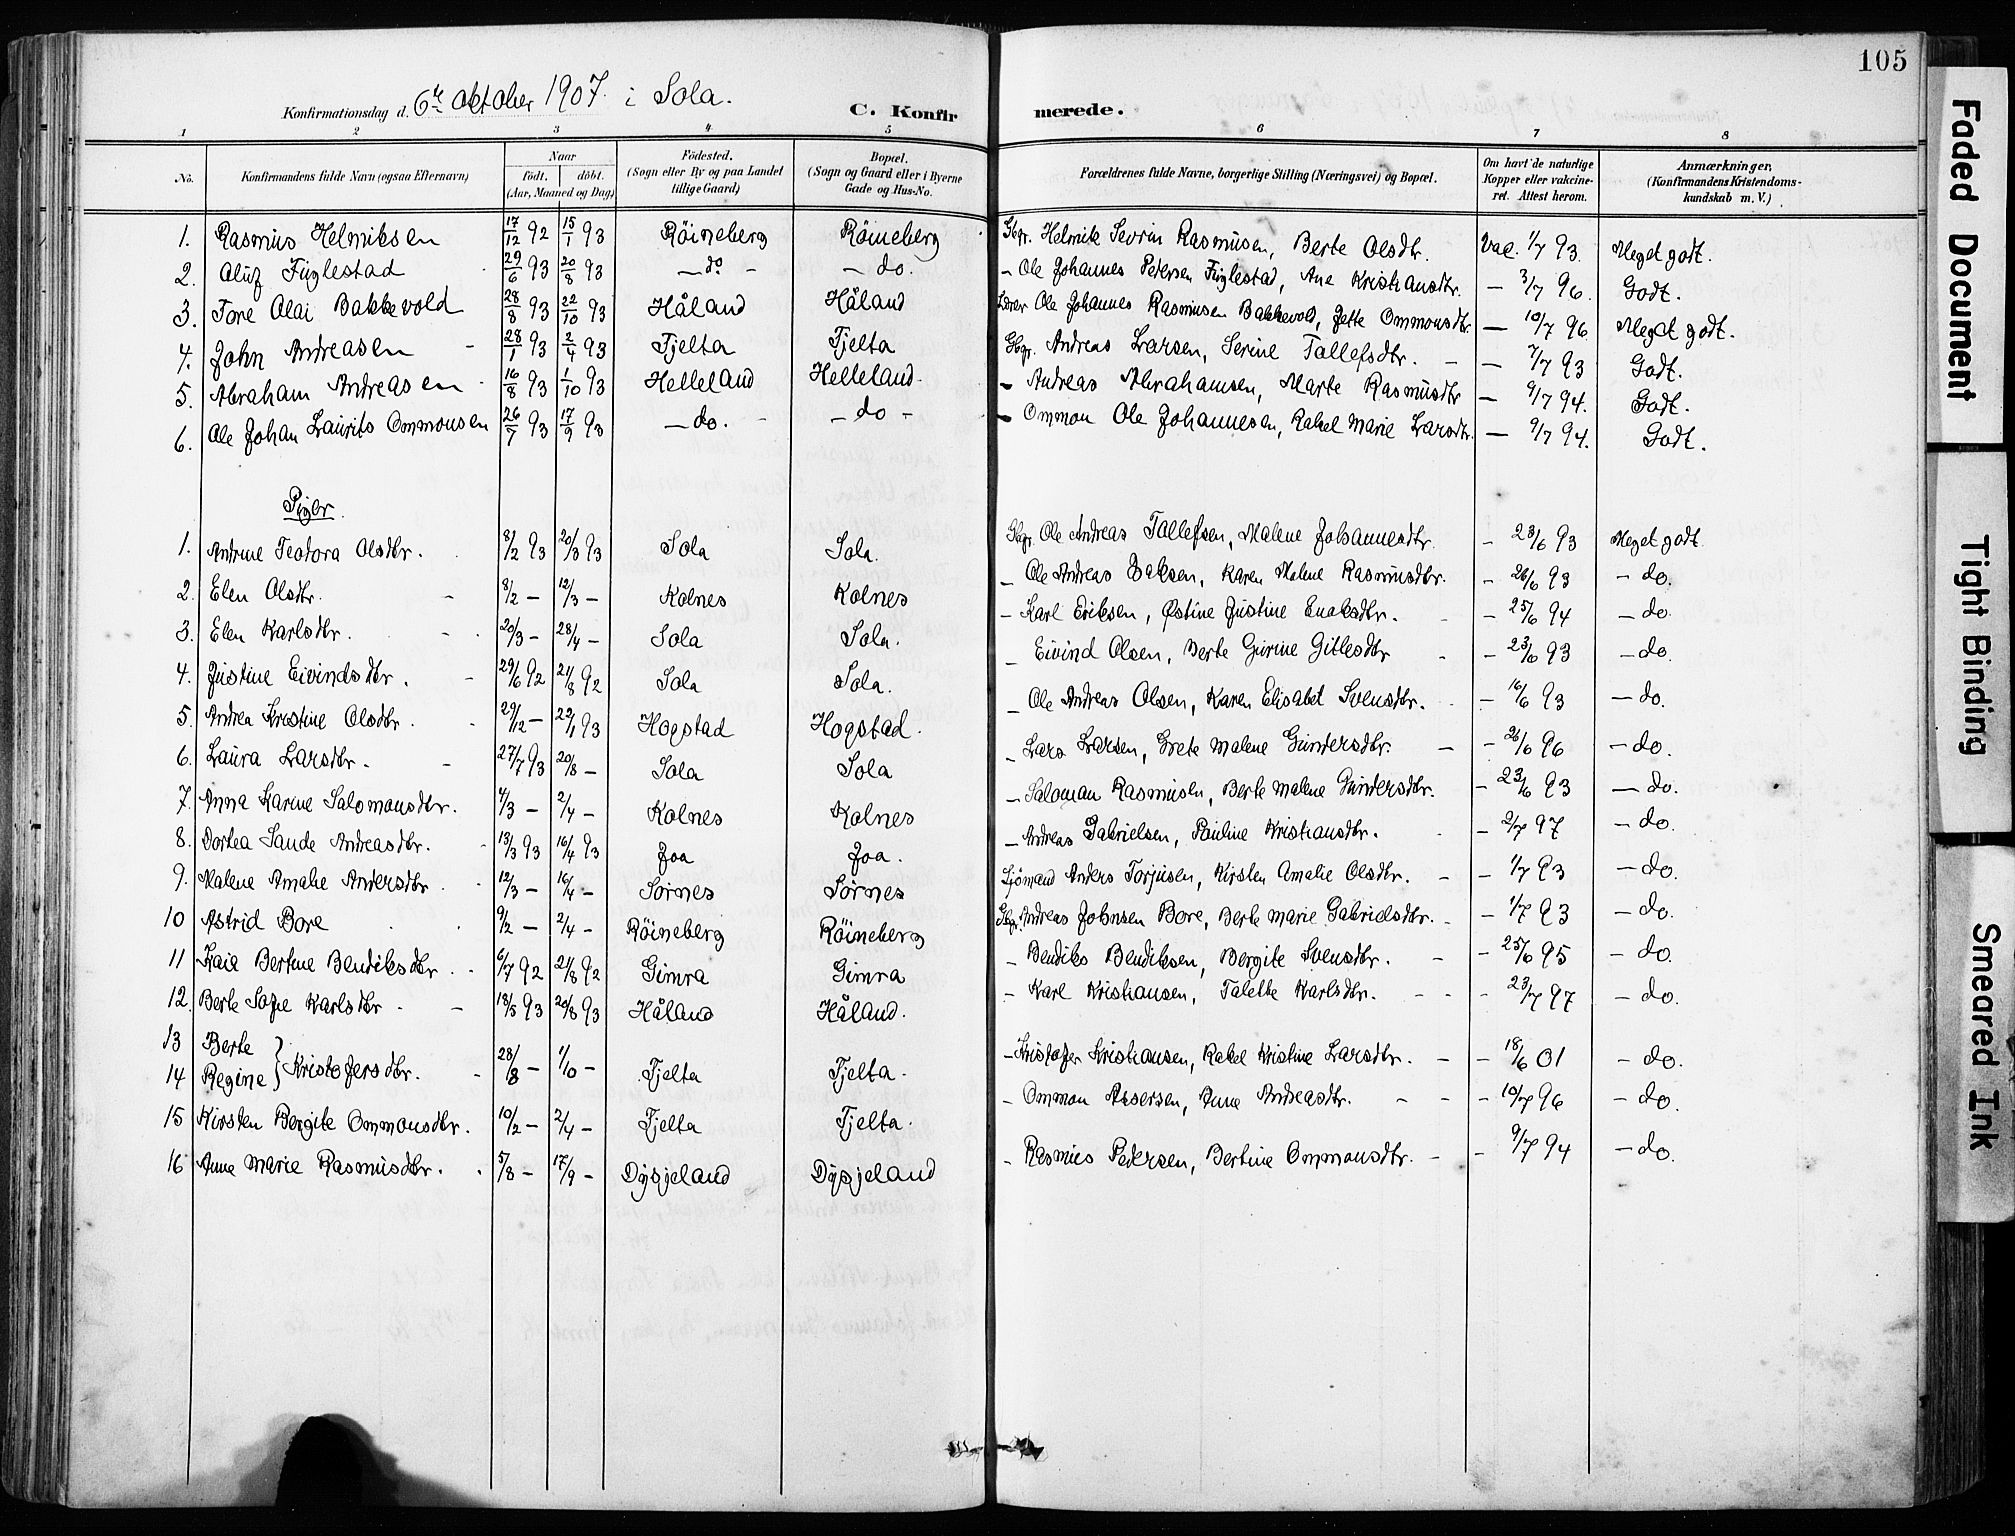 105
Konfirmationsdag d. 6te oktober 1907. i Sola.
C. Konfirmerede.
1 2 3 4 5 6 7 8
No. Konfirmandens fulde Navn (ogsaa Efternavn) Naar født. døbt. (Aar, Maaned og Dag) Födested. (Sogn eller By og paa Landet tillige Gaard) Bopæl. (Sogn og Gaard eller i Byerne Gade og Hus-No. Forældrenes fulde Navne, borgerlige Stilling (Næringsvei) og Bopæl. Om havt de naturlige Kopper eller vakcineret. Attest herom. Anmærkninger, (Konfirmandens Kristendomskundskab m. V.)
1. Rasmus Helmiksen 17/12 92 15/1 93 Röineberg Röineberg Gbgr. Helmik Sevrin Rasmusen, Berte Olsdtr. Vac. 1/7 93. Meget godt.
2. Oluf Fuglestad 29/6 93 20/8 93 — do. - — do. - Ole Johannes Petersen Fuglestad, Ane Kristiansdtr. — 3/7 96. Godt.
3. Tore Olai Bakkevold 28/8 93 22/10 93 Håland Håland Lærer Ole Johannes Rasmusen Bakkevold, Jette Ommonsdtr. — 10/7 96. Meget godt.
4. John Andreasen - 28/1 93 2/4 93 Tjelta Tjelta Gbgr. Andreas Larsen, Serine Tallefsdtr. - — 7/7 93 Godt.
5. Abraham Andreasen - 16/8 93 1/10 93 Helleland Helleland. - Andreas Abrahamsen, Marte Rasmusdtr — 9/7 94. Godt.
6. Ole Johan Laurits Ommonsen 26/7 93 17/9 93 — do. - — do - - Ommon Ole Johannesen, Rakel Marie Larsdtr. — 9/7 94. Godt.
Piger.
1. Andrine Teodora Olsdtr. 8/2 93 20/3 93 Sola Sola. Gbgr. Ole Andreas Tallefsen, Malene Johannesdtr. - 23/6 93 Meget godt
2. Elen Olsdtr. - 8/2 — 12/3 — Kolnes Kolnes - Ole Andreas Isaksen, Karen Malene Rasmusdtr. - 26/6 93 - do.
3. Elen Karlsdtr. - 20/3 - 28/4 - Sola Sola. - Karl Eriksen, Østine Justine Enoksdtr. - 25/6 94 - do
4. Justine Eivindsdtr. - 29/6 92 21/8 92 Sola Sola. - Eivind Olsen, Berte Gurine Gitlesdtr - - 23/6 93 - do.
5. Andrea Kristine Olsdtr. 29/12 — 22/1 93 Hogstad Hogstad. - Ole Andreas Olsen, Karen Elisabet Svensdtr. - 16/6 93 - do.
6. Laura Larsdtr. - 27/7 93 20/8 - Sola Sola - Lars Larsen, Grete Malene Gundersdtr. — - 26/6 96 - do.
7. Anna Karine Salomonsdtr. 4/3 - 2/4 - Kolnes Kolnes - Saloman Rasmusen, Berte Malene Gundersdtr. - 23/6 93 — do.
8. Dortea Sande Andreasdtr. 13/3 93 16/4 93 Joa Joa. - Andreas Gabrielsen, Pauline Kristiansdtr. - 2/7 97 - do.
9. Malene Amalie Andersdtr. 12/3 - 16/4 - Sørnes Sørnes Sjömand Anders Torjusen, Kirsten Amalie Olsdtr. - - 1/7 93 - do.
10 Astrid Bore 9/2 - 2/4 - Röineberg Röineberg Gbgr. Andreas Johnsen Bore, Berte Marie Gabrielsdtr. - - 1/7 93 - do.
11 Kaie Bertine Bendiksdtr. 6/7 92 21/8 92 Gimra Gimra - Bendiks Bendiksen, Bergite Svensdtr. - - 25/6 95 - do.
12. Berte Sofie Karlsdtr - - 20/8 93 Håland Håland. - Karl Kristiansen, Talette Karlsdtr. - - - 23/7 97 - do.
13 Berte
14 Regine } Kristofersdtr. - 28/8 - 1/10 - Tjelta Tjelta. - Kristofer Kristiansen, Rakel Kristine Larsdtr. - - 18/6 01 - do.
15 Kirsten Bergite Ommonsdtr. 10/2 - 2/4 - Tjelta Tjelta. - Ommon Assersen, Anna Andreasdtr. - - - 10/7 96 - do.
16 Anna Marie Rasmusdtr. 5/8 - 17/9 - Dysjeland Dysjeland - Rasmus Pedersen, Bertine Ommonsdtr. - - 9/7 94 - do.
Faded Document
Tight Binding
Smeared Ink